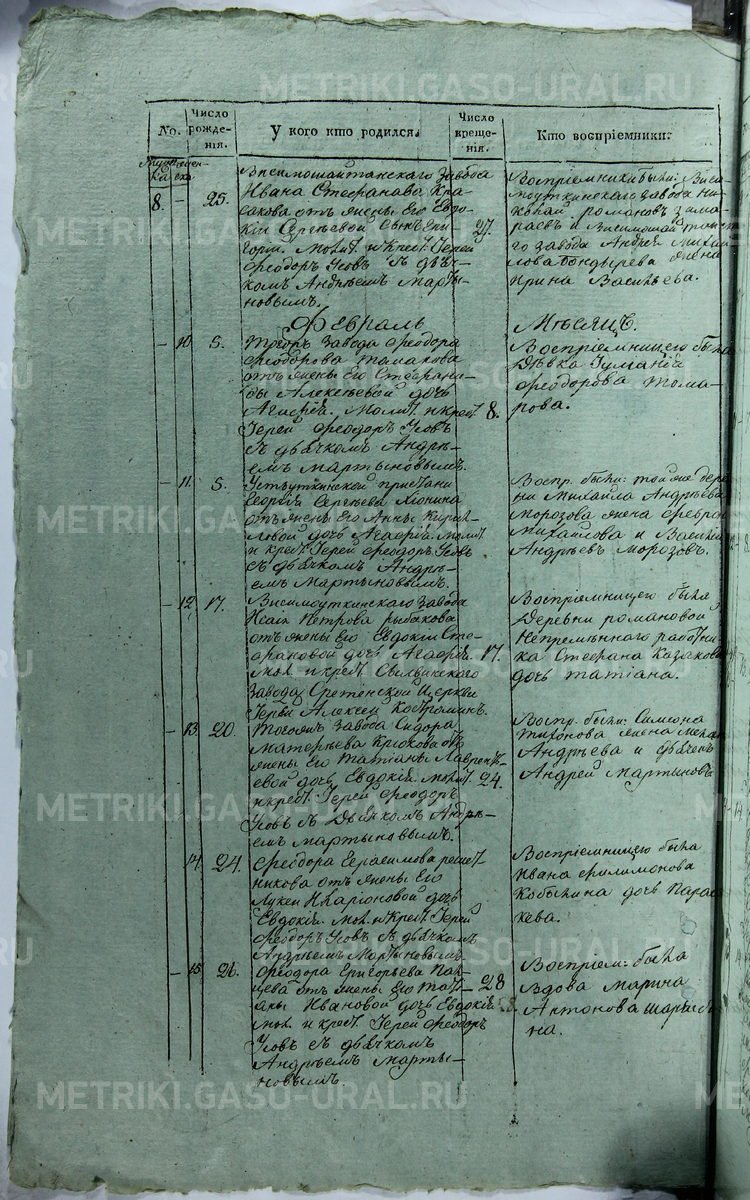 METRIKI.GASO-URAL.RU
No.
Число рожде-нія.
У кого кто родился.
Число креще-нія.
Кто воспріемники:
8. — 25.
Висимошайтанскаго завода
Ивана Стефанова Кра-
сакова отъ жены Его Евдо-
кіи Сергѣевой сынъ Гри-
горій. Молит. и крест. Іерей
Феодоръ Усовъ съ дьяч-
комъ Андрѣемъ Марты-
новымъ.
27.
Воспріемники были: Виси-
моуткинскаго завода Ни-
колай романовъ
и Висимошайтанска-
го завода Андрея Михай-
лова жена
Ирина Васильева.
Февраль
Мѣсяцъ.
— 10 5.
Тогожъ завода Феодора
Феодорова
отъ жены Его Стефани-
ды Алексѣевой дочь
Агафія. Молит. и крест.
Іерей Феодоръ Усовъ
съ дьячкомъ Андрѣ-
емъ Мартыновымъ.
8.
Воспріемницею была
дѣвка
Феодорова
— 11. 5.
Устьуткинской пристани
Георгія Сергѣева
отъ жены Его Анны Кирил-
ловой дочь Агафія. Молит.
и крест. Іерей Феодоръ Усовъ
съ дьячкомъ Андрѣ-
емъ Мартыновымъ.
Воспр. были: той же дерев-
ни Михаила Андрѣева
Морозова жена
Михайлова и Василей
Андрѣевъ Морозовъ.
— 12 17.
Висимоуткинскаго завода
Исаіи Петрова рыбакова
отъ жены Его Евдокіи Сте-
фановой дочь Агафія.
мол. и крест. Сылвинскаго
завода Срѣтенской Церкви
Іерей Алексей
17.
Воспріемницею была
деревни романовой
Непремѣннаго работни-
ка Стефана Казакова
дочь татіана.
— 13 20.
Тогожъ завода Сидора
Матвѣева Крюкова отъ
жены Его Татіаны Лаврентье-
евой дочь Евдокія. молит.
и крест. Іерей Феодоръ
Усовъ съ Дьячкомъ Андрѣ-
емъ Мартыновымъ.
24.
Воспр. были: Симеона
Тихонова жена
Андрѣева и дьячекъ
Андрей Мартыновъ
14 24.
Феодора Герасимова решет-
никова отъ жены Его
Лукеи Иларіоновой дочь
Евдокія. Мол. и крест. Іерей
Феодоръ Усовъ съ дьячкомъ
Андрѣемъ Мартыновымъ.
Воспріемницею была
Ивана Филимонова
Кобылина дочь Парас-
кева.
— 15 26.
Феодора Григорьева
отъ жены Его Тать-
яны Ивановой дочь Евдокія
мол. и крест. Іерей Феодоръ
Усовъ съ дьячкомъ
Андрѣемъ Марты-
новымъ.
28
Воспріем: была
вдова Марина
Антонова